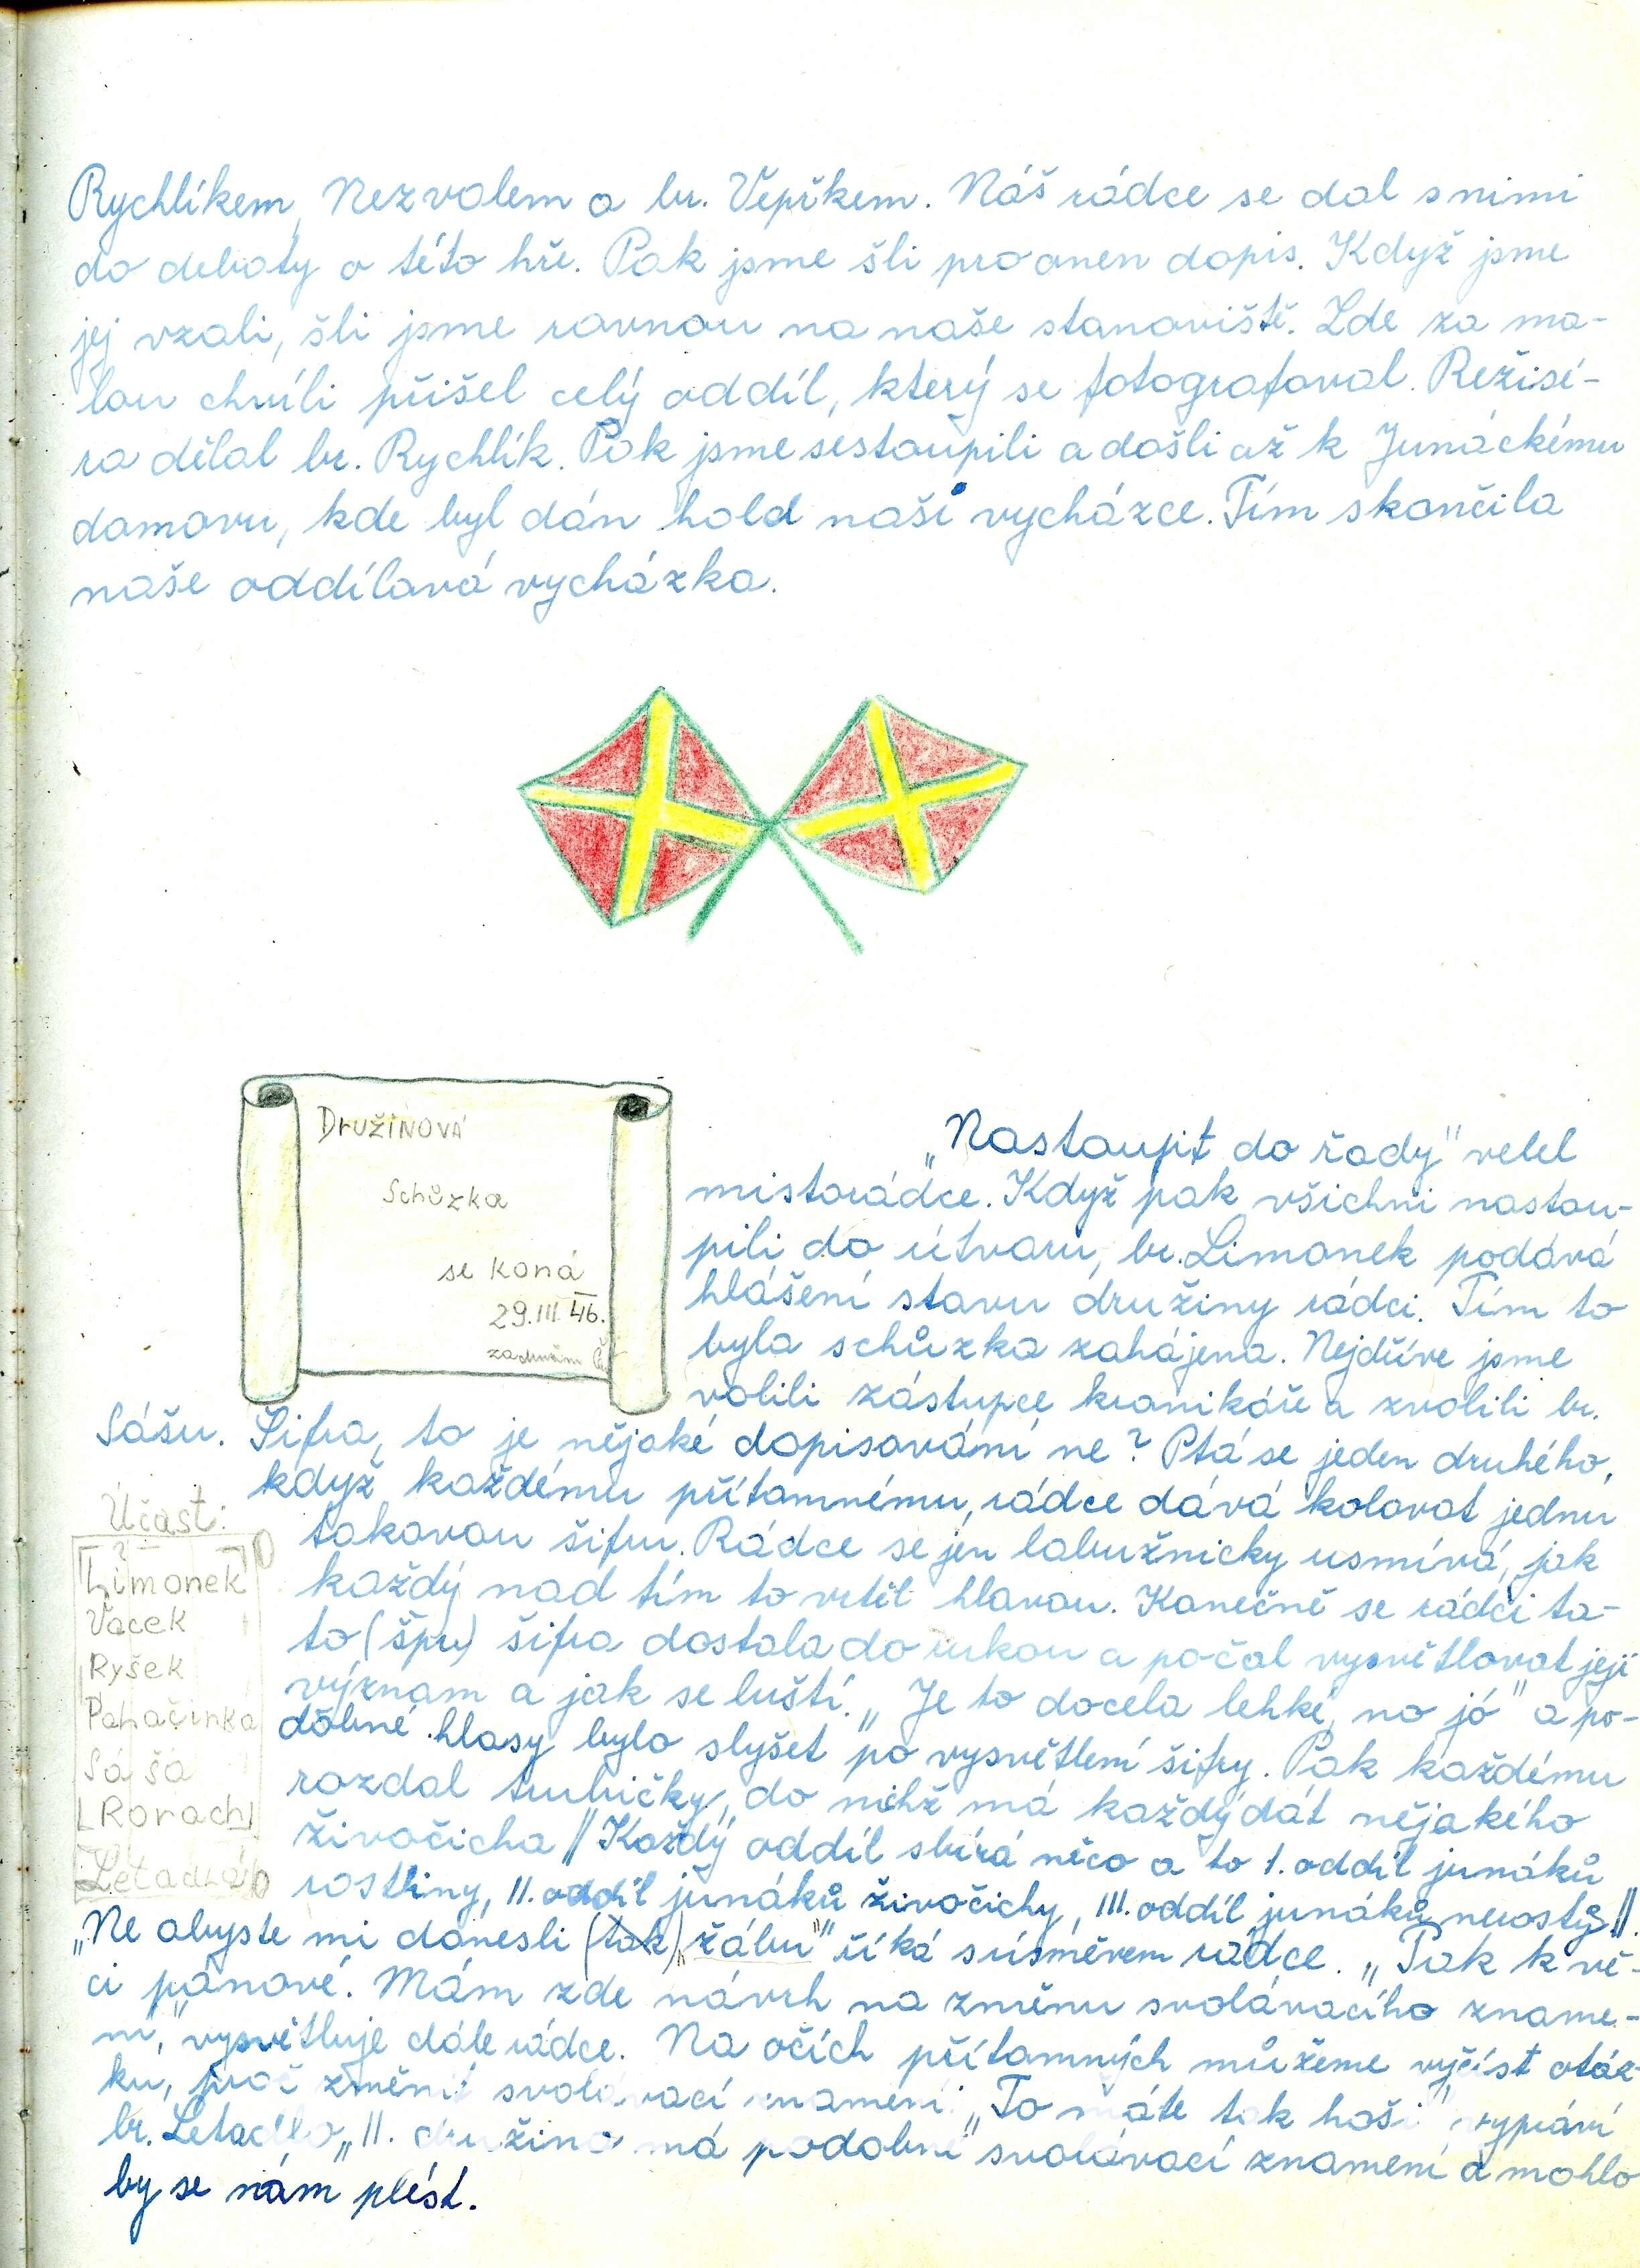 Rychlíkem, Nezvalem a br. Vepřkem. Náš rádce se dal s nimi
do debaty o této hře. Pak jsme šli pro onen dopis. Když jsme
jej vzali, šli jsme rovnou na naše stanoviště. Zde za ma-
lou chvíli přišel celý oddíl, který se fotografoval. Režisé-
ra dělal br. Rychlík. Pak jsme sestoupili a došli až k Junáckému
domovu, kde byl dán hold naší vycházce. Tím skončila
naše oddílová vycházka.
Družinová
Schůzka
se koná
29.III.46.
„Nastoupit do řady" velel
mistorádce. Když pak všichni nastou-
pili do útvaru, br. Limonek podává
hlášení stavu družiny rádci. Tím to
byla schůzka zahájena. Nejdříve jsme
volili zástupce kronikáře a zvolili br.
Sášu. Šifra, to je nějaké dopisování ne? Ptá se jeden druhého,
když každému přítomnému, rádce dává kolovat jednu
takovou šifru. Rádce se jen labužnicky usmívá, jak
každý nad tím to vrtěl hlavou. Konečně se rádci ta-
to (špr) šifra dostala do rukou a počal vysvětlovat její
význam a jak se luští. „Je to docela lehké, no jó" a po-
dobné hlasy bylo slyšet po vysvětlení šifry. Pak každému
rozdal trubičky, do nichž má každý dát nějakého
živočicha // Každý oddíl sbírá něco a to 1. oddíl junáků
rostliny, II. oddíl junáků živočichy, III. oddíl junáků nerosty //.
„Ne abyste mi donesli (tak) „žábu" říká s úsměvem rádce. „Tak k vě-
ci pánové. Mám zde návrh na změnu svolávacího zname-
ní," vysvětluje dále rádce. Na očích přítomných můžeme vyčíst otáz-
ku, proč změnit svolávací znamení. „To máte tak hoši" vypráví
br. Letadlo „II. družina má podobné svolávací znamení a mohlo
by se nám plést.
Účast:
Limonek
Vacek
Ryšek
Pahačinka
Sáša
Rorach
Letadlo